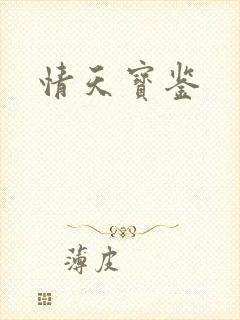 情天寳鉴
薄皮